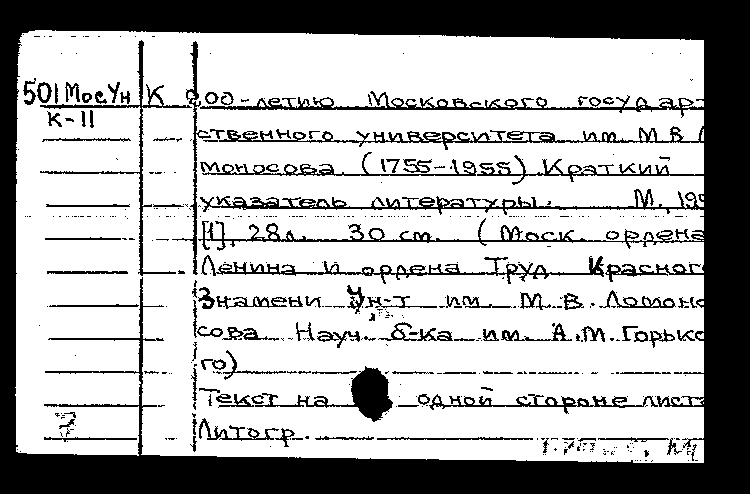 501 Мос.Ун К 200-летию Московского государт
К-11
ственного университета им. М В Л
моносова. (1755-1955). Краткий
указатель литературы. М., 195
[1], 28л. 30 см. (Моск. ордена
Ленина и ордена Труд Красног
Знамени Ун-т им. М. В. Ломоно
сова Науч. б-ка им. А.М. Горько
го)
Текст на одной стороне листа
Литогр.
7